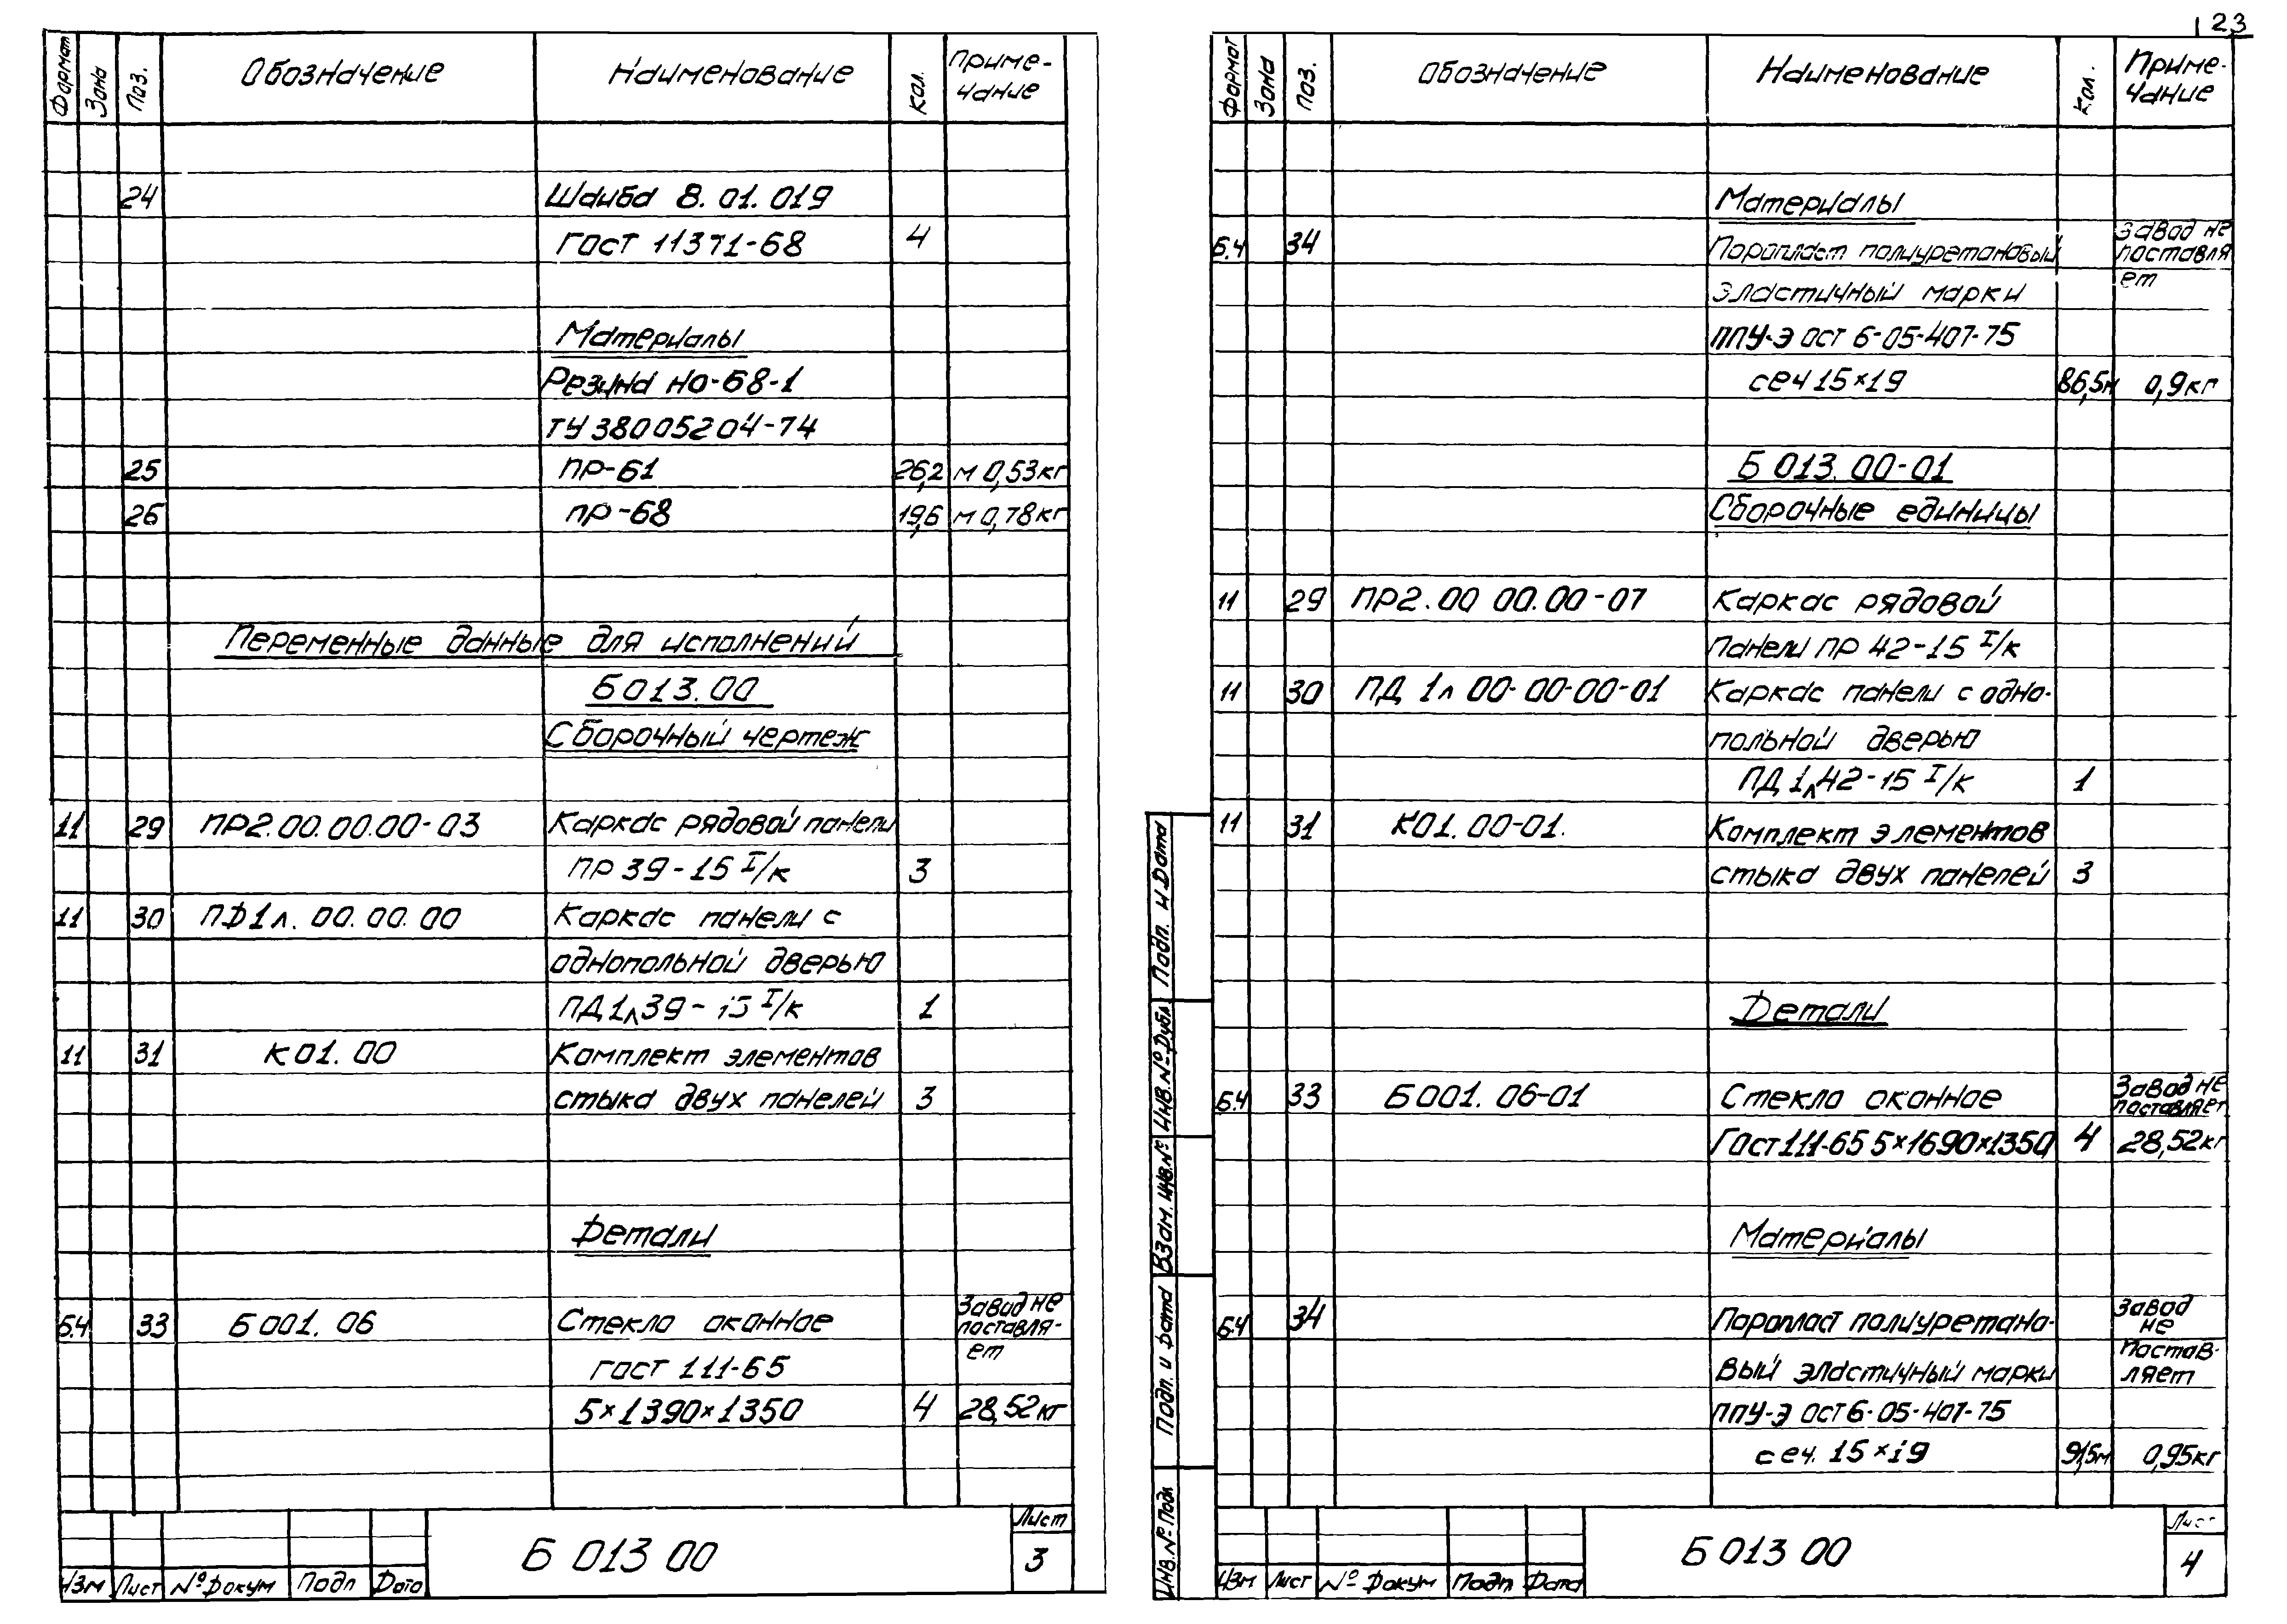 123
Формат Зона Поз. Обозначение Наименование Кол. Приме-
чание
24 Шайба 8.01.019
ГОСТ 11371-68 4
Материалы
Резина НО-68-1
ТУ 38005204-74
25 ПР-61 26,2 м 0,53кг
26 ПР-68 19,6 м 0,78кг
Переменные данные для исполнений
Б013.00
Сборочный чертеж
11 29 ПР2.00.00.00-03 Каркас рядовой панели
ПР 39-15 I/к 3
11 30 ПД1л.00.00.00 Каркас панели с
однопольной дверью
ПД1л39-15 I/к 1
11 31 К01.00 Комплект элементов
стыка двух панелей 3
Детали
Б.Ч 33 Б001.06 Стекло оконное Завод не
поставля-
ет
ГОСТ 111-65
5×1390×1350 4 28,52кг
Изм Лист № Докум Подп Дата
Б 013 00
Лист
3
Формат Зона Поз. Обозначение Наименование Кол. Приме-
чание
Материалы
Б.Ч 34 Поропласт полиуретановый Завод не
поставля
ет
эластичный марки
ППУ-Э ОСТ 6-05-407-75
сеч 15×19 86,5м 0,9кг
Б 013.00-01
Сборочные единицы
11 29 ПР2.00 00.00-07 Каркас рядовой
панели ПР 42-15 I/к
11 30 ПД 1л 00-00-00-01 Каркас панели с одно-
польной дверью
ПД 1л42-15 I/к 1
11 31 К01.00-01. Комплект элементов
стыка двух панелей 3
Детали
Б.Ч 33 Б001.06-01 Стекло оконное Завод не
поставляет
ГОСТ 111-65 5×1690×1350 4 28,52кг
Материалы
Б.Ч 34 Поропласт полиуретано- Завод
не
вый эластичный марки Постав-
ляет
ППУ-Э ОСТ 6-05-407-75
сеч. 15×19 91,5м 0,95кг
Инв. № Подл Подп. и дата Взам. инв. № Инв. № Дубл Подп. и Дата
Изм Лист № Докум Подп Дата
Б 013 00
Лист
4